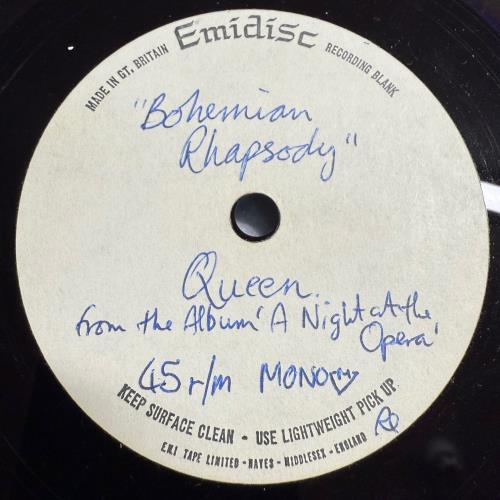 Emidisc
MADE IN GT. BRITAIN
RECORDING BLANK
"Bohemian
Rhapsody"
Queen.
from the Album 'A Night at the
Opera'
45 r/m MONO
KEEP SURFACE CLEAN - USE LIGHTWEIGHT PICK UP
E.M.I TAPE LIMITED - HAYES - MIDDLESEX - ENGLAND